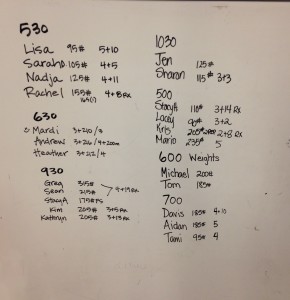 530
Lisa 95# 5+10
Sarah 105# 4+5
Nadja 125# 4+11
Rachel 155# 4+8 Rx
165(1)
630
Mardi 3+210/3
Andrew 3+216/4+200m
Heather 3+212/4
930
Greg 315#
Sean 215# 4+13 Rx
StacyA 175# PS
Kim 205# 3+5 Rx
Kathryn 205# 3+13 Rx
1030
Jen 125#
Sharon 115# 3+3
500
StacyH 110# 3+14 Rx
Lacey 90# 3+2
Kris 205# 2+8 Rx
Mario 235# 5
600 Weights
Michael 200#
Tom 185#
700
Davis 185# 4+10
Aidan 185# 5
Tami 95# 4